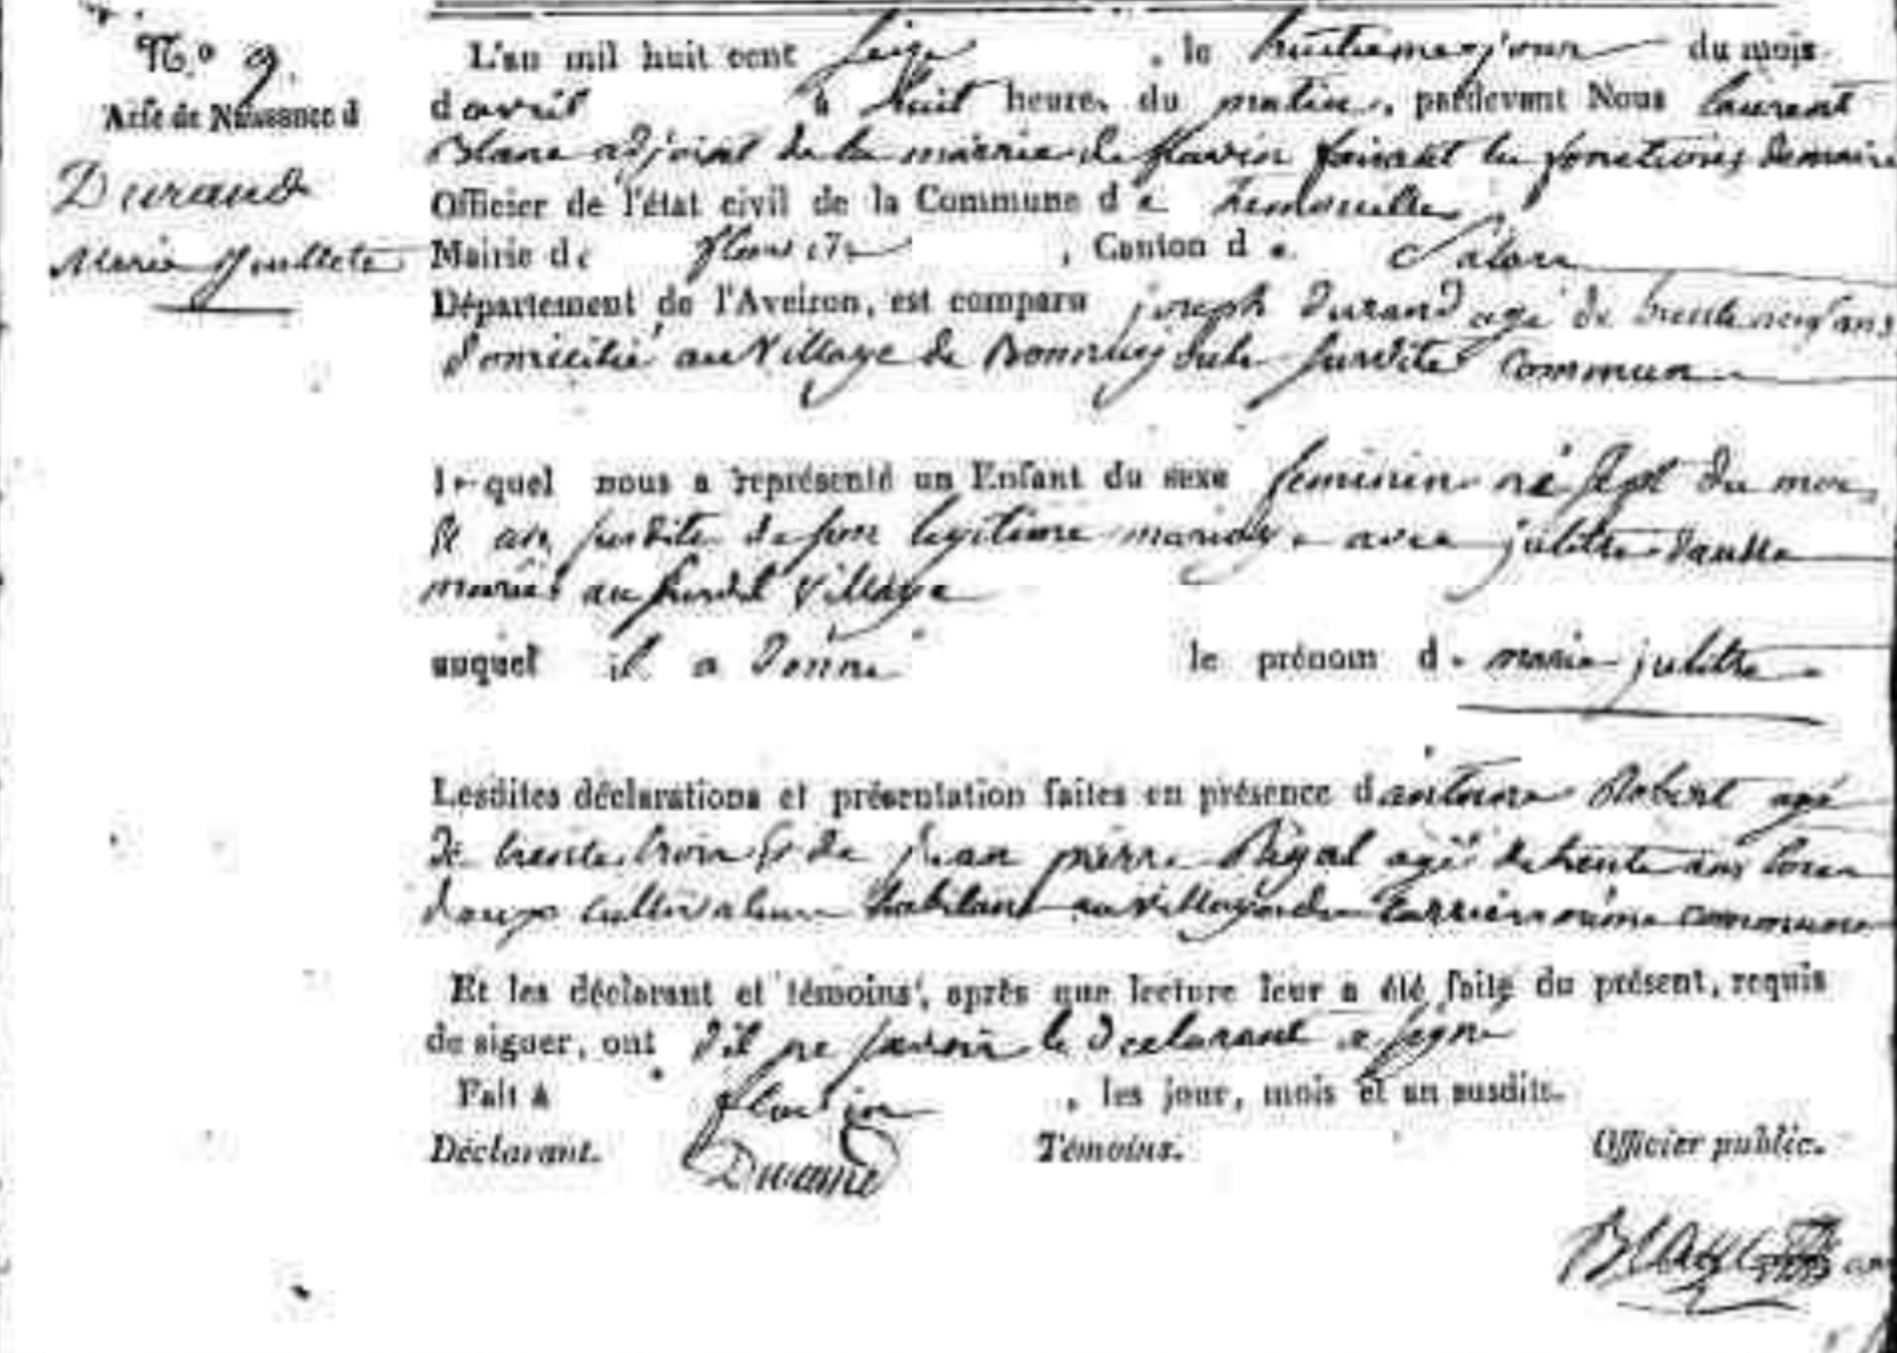 N.º 9.
Acte de Naissance d
Durand
Marie Juillete
L'an mil huit cent seize, le huitieme jour du mois
d avril à huit heures du matin, pardevant Nous laurent
Blanc adjoint de la mairie de flavin faisant les fonctions de maire
Officier de l'état civil de la Commune d e tremouilles
Mairie de flavin, Canton d e Salars
Département de l'Aveiron, est comparu joseph durand agé de trente neuf ans
domicilié au village de Bonnruej de la surdite commune
lequel nous a représenté un Enfant du sexe feminin né sept du mois
& an surdits de son legitime mariage avec julitte
mariés au surdit village
auquel il a donné le prénom de marie julitte
Lesdites déclarations et présentation faites en présence d antoine Robert agé
de trente trois & de jean pierre Rigal agé de trente ans tous
deux cultivateurs habitans au village de même commune
Et les déclarant et témoins, après que lecture leur a été faite du présent, requis
de signer, ont dit ne savoir le declarant a signé
Fait à flavin, les jour, mois et an susdits.
Déclarant. Témoins. Officier public.
Durand
Blanc